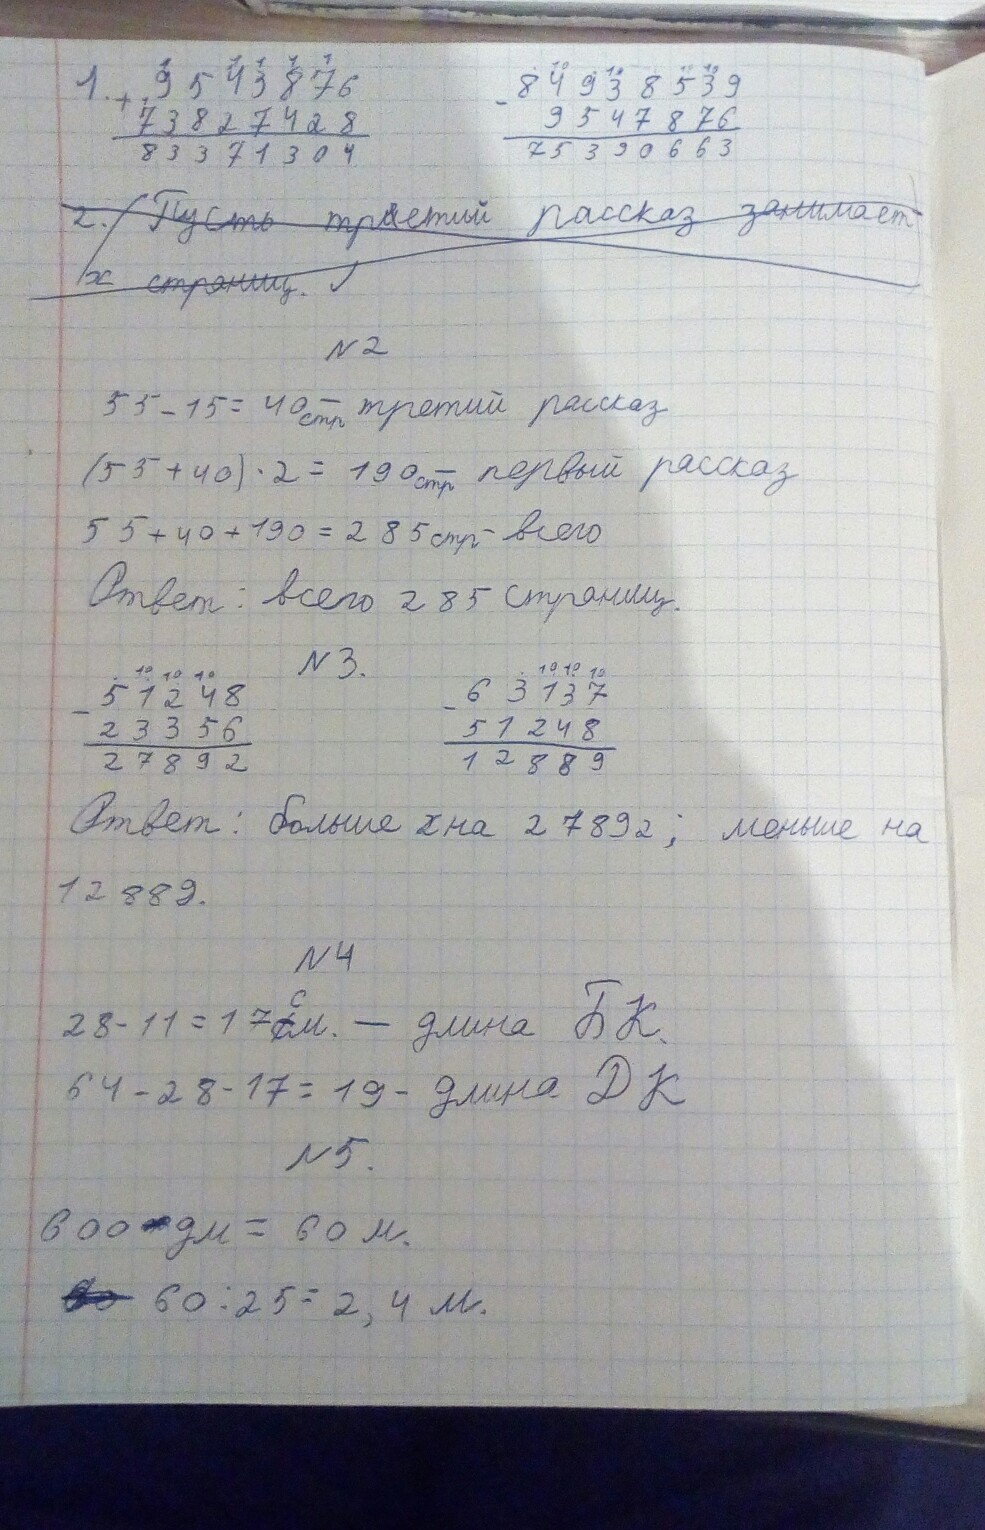 1. + 9543876
73827428
83371304
- 84938539
9547876
75390663
2. Пусть третий рассказ занимает
x страниц.
N2
55-15=40стр - третий рассказ
(55+40)·2=190стр - первый рассказ
55+40+190=285стр - всего
Ответ: всего 285 страниц.
N3.
- 51248
23356
27892
- 63137
51248
12889
Ответ: больше на 27892; меньше на
12889.
N4
28-11=17см. - длина БК.
64-28-17=19- длина ДК
N5.
600 дм = 60 м.
60:25=2,4 м.